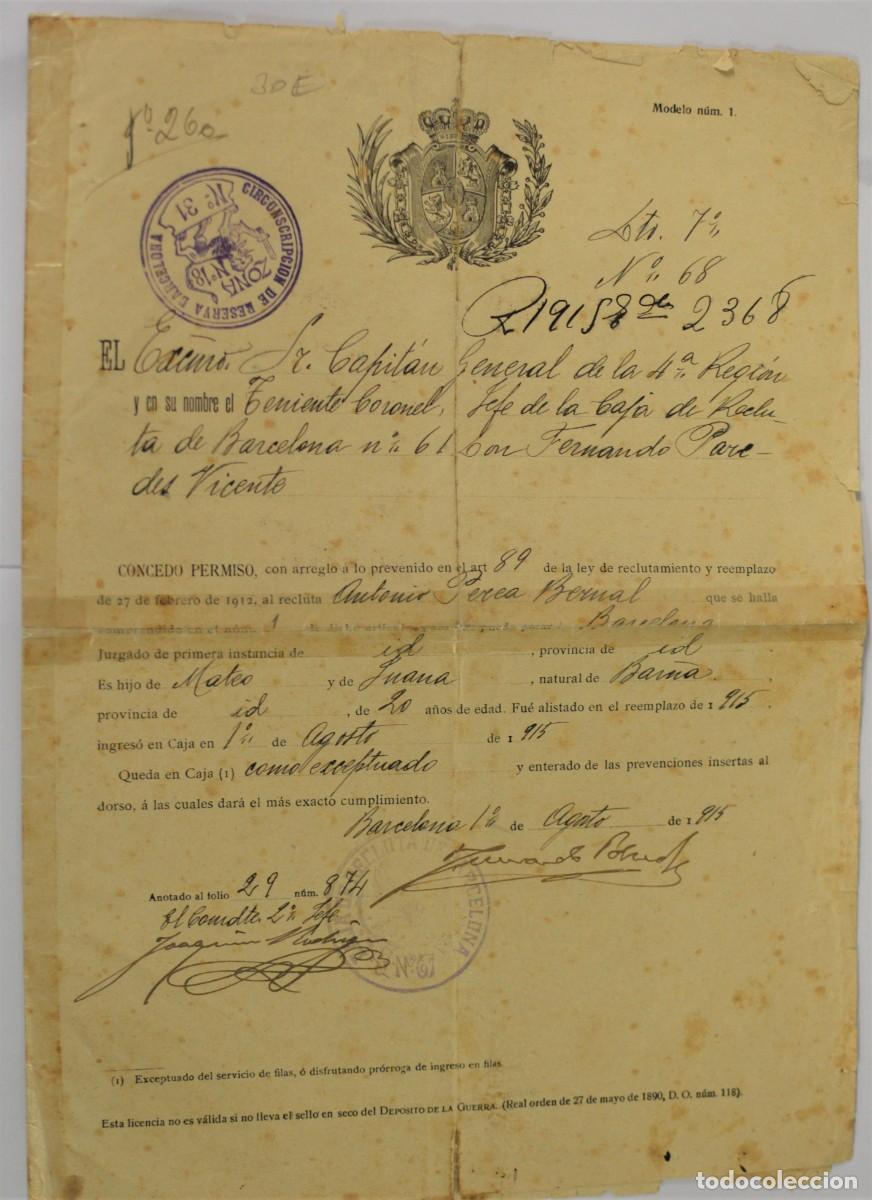 30E
Modelo núm. 1.
nº 260
CIRCUNSCRIPCION DE RESERVA BARCELONA
Nº 31
ZONA Nº 18
Dto. 7º
Nº 68
R 1915 8 de 2368
EL Excmo. Sr. Capitán General de la 4ª Región
y en su nombre el Teniente Coronel, Jefe de la Caja de Reclu-
ta de Barcelona nº 61 Don Fernando Pare-
des Vicente
CONCEDO PERMISO, con arreglo a lo prevenido en el art 89 de la ley de reclutamiento y reemplazo
de 27 de febrero de 1912, al recluta Antonio Perea Bernal que se halla
comprendido en el núm. 1 de dicho artículo Barcelona
Juzgado de primera instancia de id , provincia de id .
Es hijo de Mateo y de Juana , natural de Barña .
provincia de id , de 20 años de edad. Fué alistado en el reemplazo de 1915 ,
ingresó en Caja en 1º de Agosto de 1915
Queda en Caja (1) como exceptuado y enterado de las prevenciones insertas al
dorso, á las cuales dará el más exacto cumplimiento.
Barcelona 1º de Agosto de 1915
Fernando
Anotado al folio 29 núm. 874
El Comdte. 2º Jefe
Joaquin
Nº 61
(1) Exceptuado del servicio de filas, ó disfrutando prórroga de ingreso en filas.
Esta licencia no es válida si no lleva el sello en seco del DEPOSITO DE LA GUERRA. (Real orden de 27 de mayo de 1890, D. O. núm. 118).
todocoleccion